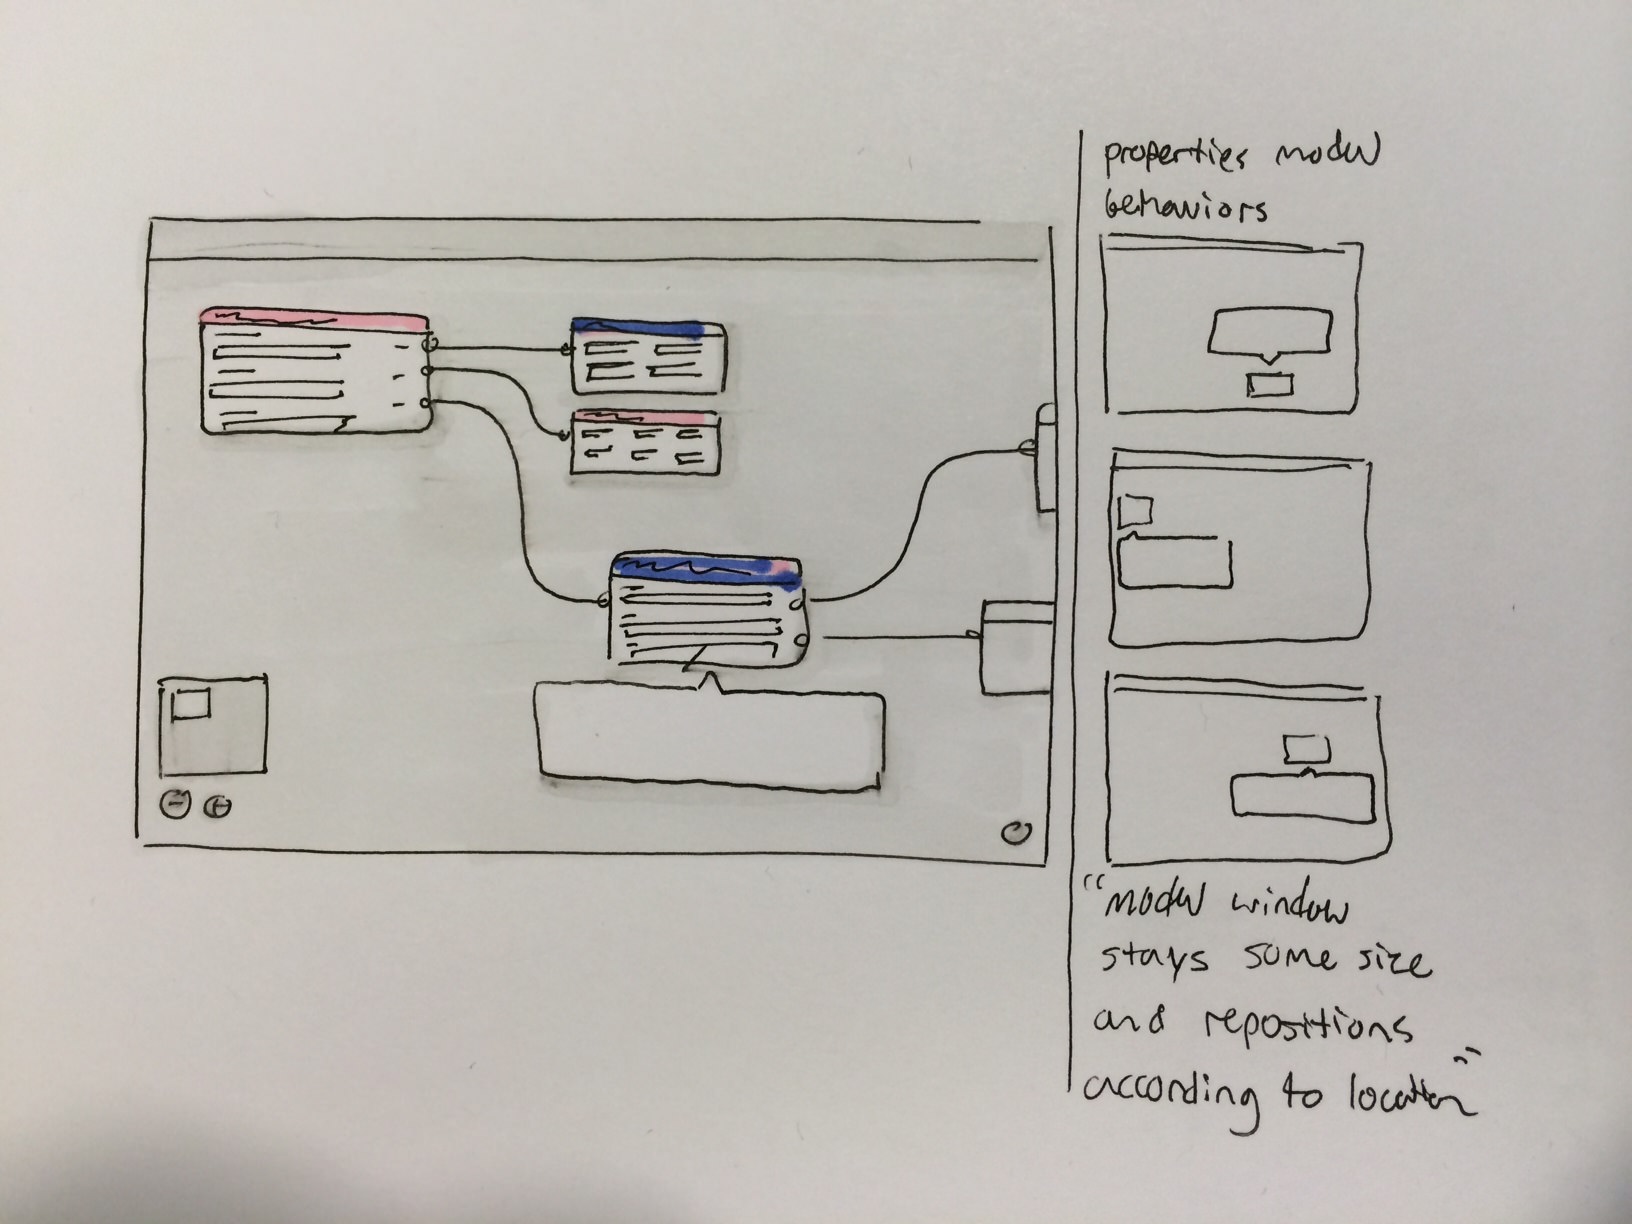 properties modal
behaviors
"modal window
stays same size
and repositions
according to location"